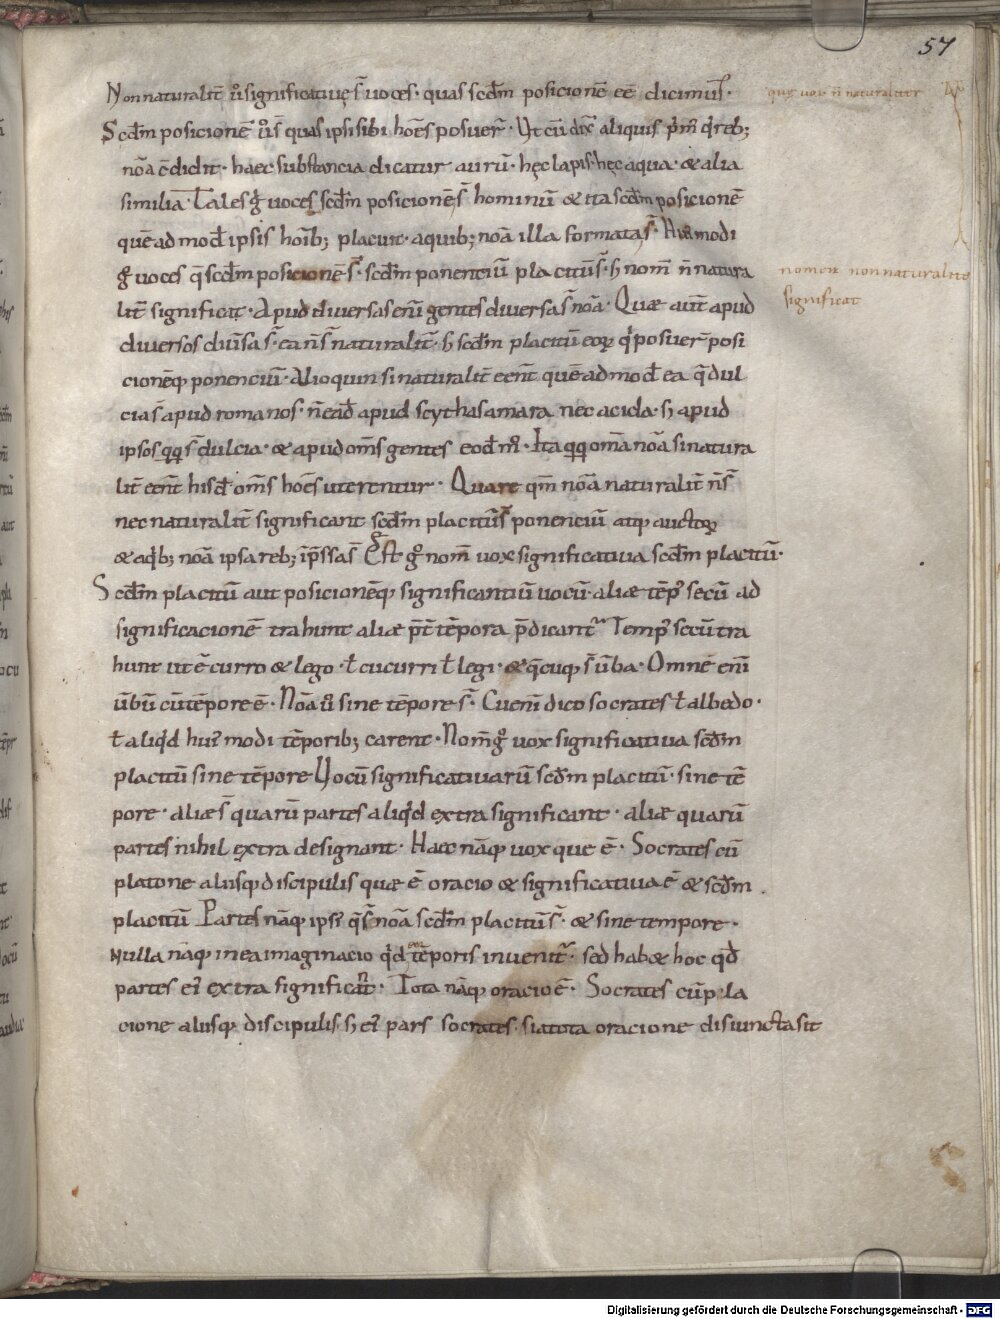 57
Non naturalit̄ ū significatiuę s̄ uoces · quas scd̄m posicionē eē dicimus ·
que uox n̄ naturaliter
Scd̄m posicionē ū s̄ quas ipsi sibi hōes posuer̄ · Ut cū dix̄ aliquis p̄m q̄ reb;
nōa c̄didit · haec substancia dicatur aurū · hęc lapis · hęc aqua · & alia
similia · Tales ḡ uoces scd̄m posicionē s̄ hominū & ita scd̄m posicionē
quēadmod̄ ipsis hoīb; placuit · a quib; nōa illa formata s̄ · modi
ḡ uoces q̄ scd̄m posicionē s̄ · scd̄m ponenciū placitū s̄ · ꜱ̄ nom̄ n̄ natura
nomen non naturalite
lit̄ significat · Apud diuersas eni gentes diuersa s̄ nōa · Quae aut̄ apud
significat
diuersos diūsa s̄ · ea n̄ s̄ naturalit̄ · ꜱ̄ scd̄m placitū eoꝝ q̇ posuer̄ posi
cionēq; ponenciū · Alioquin si naturalit̄ eent̄ quēadmod̄ ea q̄ dul
cia s̄ apud romanos · n̄ ead̄ apud scythas amara nec acida · ꜱ̄ apud
ipsos qq; s̄ dulcia · & apud om̄s gentes eod̄ m̊ · Ita qq; om̄a nōa si natura
lit̄ eent̄ hisd̄ om̄s hōes uterentur · Quare qm̄ nōa naturalit̄ n̄ s̄
nec naturalit̄ significant scd̄m placitū s̄ ponenciū atq; auctoꝝ
& a q̇b; nōa ipsa reb; īp̄ssa s̄ Est ḡ nom̄ uox significatiua scd̄m placitū ·
Scd̄m placitū aut posicionēq; significantiū uocū · aliae tēp᷒ secū ad
significacionē trahunt aliae p̄t̄ tēpora p̄dicant᷑ Temp᷒ secū tra
hunt ut ē curro & lego · ł cucurri ł legi · & q̄cūq; s̄ ūba · Omne enī
ūbū cū tēpore ē · Nōa ū sine tēpore s̄ · Cū eni dico socrates ł albedo ·
ł aliq̇d hui᷒ modi tēporib; carent · Nom̄ ḡ uox significatiua scd̄m
placitū sine tēpore Uocū significatiuarū scd̄m placitū · sine tē
pore · aliae s̄ quarū partes aliq̇d extra significant · aliae quarū
partes nihil extra designant · Haec nāq; uox que ē · Socrates cū
platone aliisq; discipulis quae ē oracio & significatiua ē & scd̄m
placitū Partes nāq; ipsi᷒ q̄ s̄ nōa scd̄m placitū s̄ · & sine tempore ·
Nulla nāq; in ea imaginacio q̇d tēporis inuenit᷑ · sed hab& hoc qd̄
partes ei᷒ extra significant · Tota nāq; oracio ē · Socrates cū pla
cione aliisq; discipulis · ꜱ̄ ei᷒ pars socrates · si a tota oracione disiuncta sit
Digitalisierung gefördert durch die Deutsche Forschungsgemeinschaft - DFG